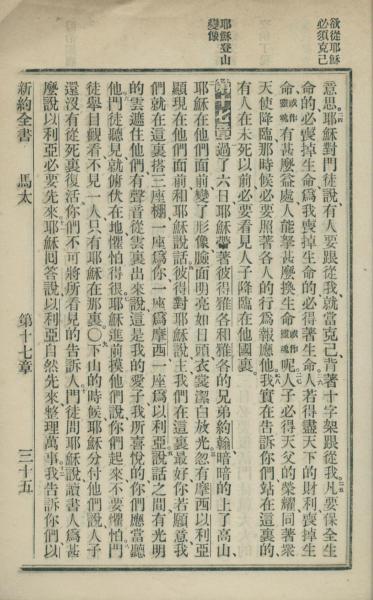 欲從耶穌
必須克己
耶穌登山
變像
意思耶穌對門徒說有人要跟從我就當克己背著十字架跟從我凡要保全生
命的必喪掉生命為我喪掉生命的必得著生命人若得盡天下的財利喪掉生
命或作靈魂有甚麼益處人能拏甚麼換生命或作靈魂呢人子必得天父的榮耀同著衆
天使降臨那時候必要照著各人的行為報應他我實在告訴你們站在這裏的
有人在未死以前必要看見人子降臨在他國裏
第十七章過了六日耶穌帶著彼得雅各和雅各的兄弟約翰暗暗的上了高山
耶穌在他們面前變了形像臉面明亮如日頭衣裳潔白放光忽有摩西以利亞
顯現在他們面前和耶穌說話彼得對耶穌說主我們在這裏最好你若願意我
們就在這裏搭三座棚一座爲你一座爲摩西一座爲以利亞說話之間有光明
的雲遮住他們有聲音從雲裏出來說這是我的愛子我所喜悅的你們應當聽
他門徒聽見就俯伏在地懼怕得很耶穌進前摸他們說你們起來不要懼怕門
徒舉目觀看不見一人只有耶穌在那裏〇下山的時候耶穌分付他們說人子
還沒有從死裏復活你們不可將所看見的告訴人門徒問耶穌說讀書人爲甚
麼說以利亞必要先來耶穌回答說以利亞自然先來整理萬事我告訴你們以
新約全書 馬太 第十七章 三十五